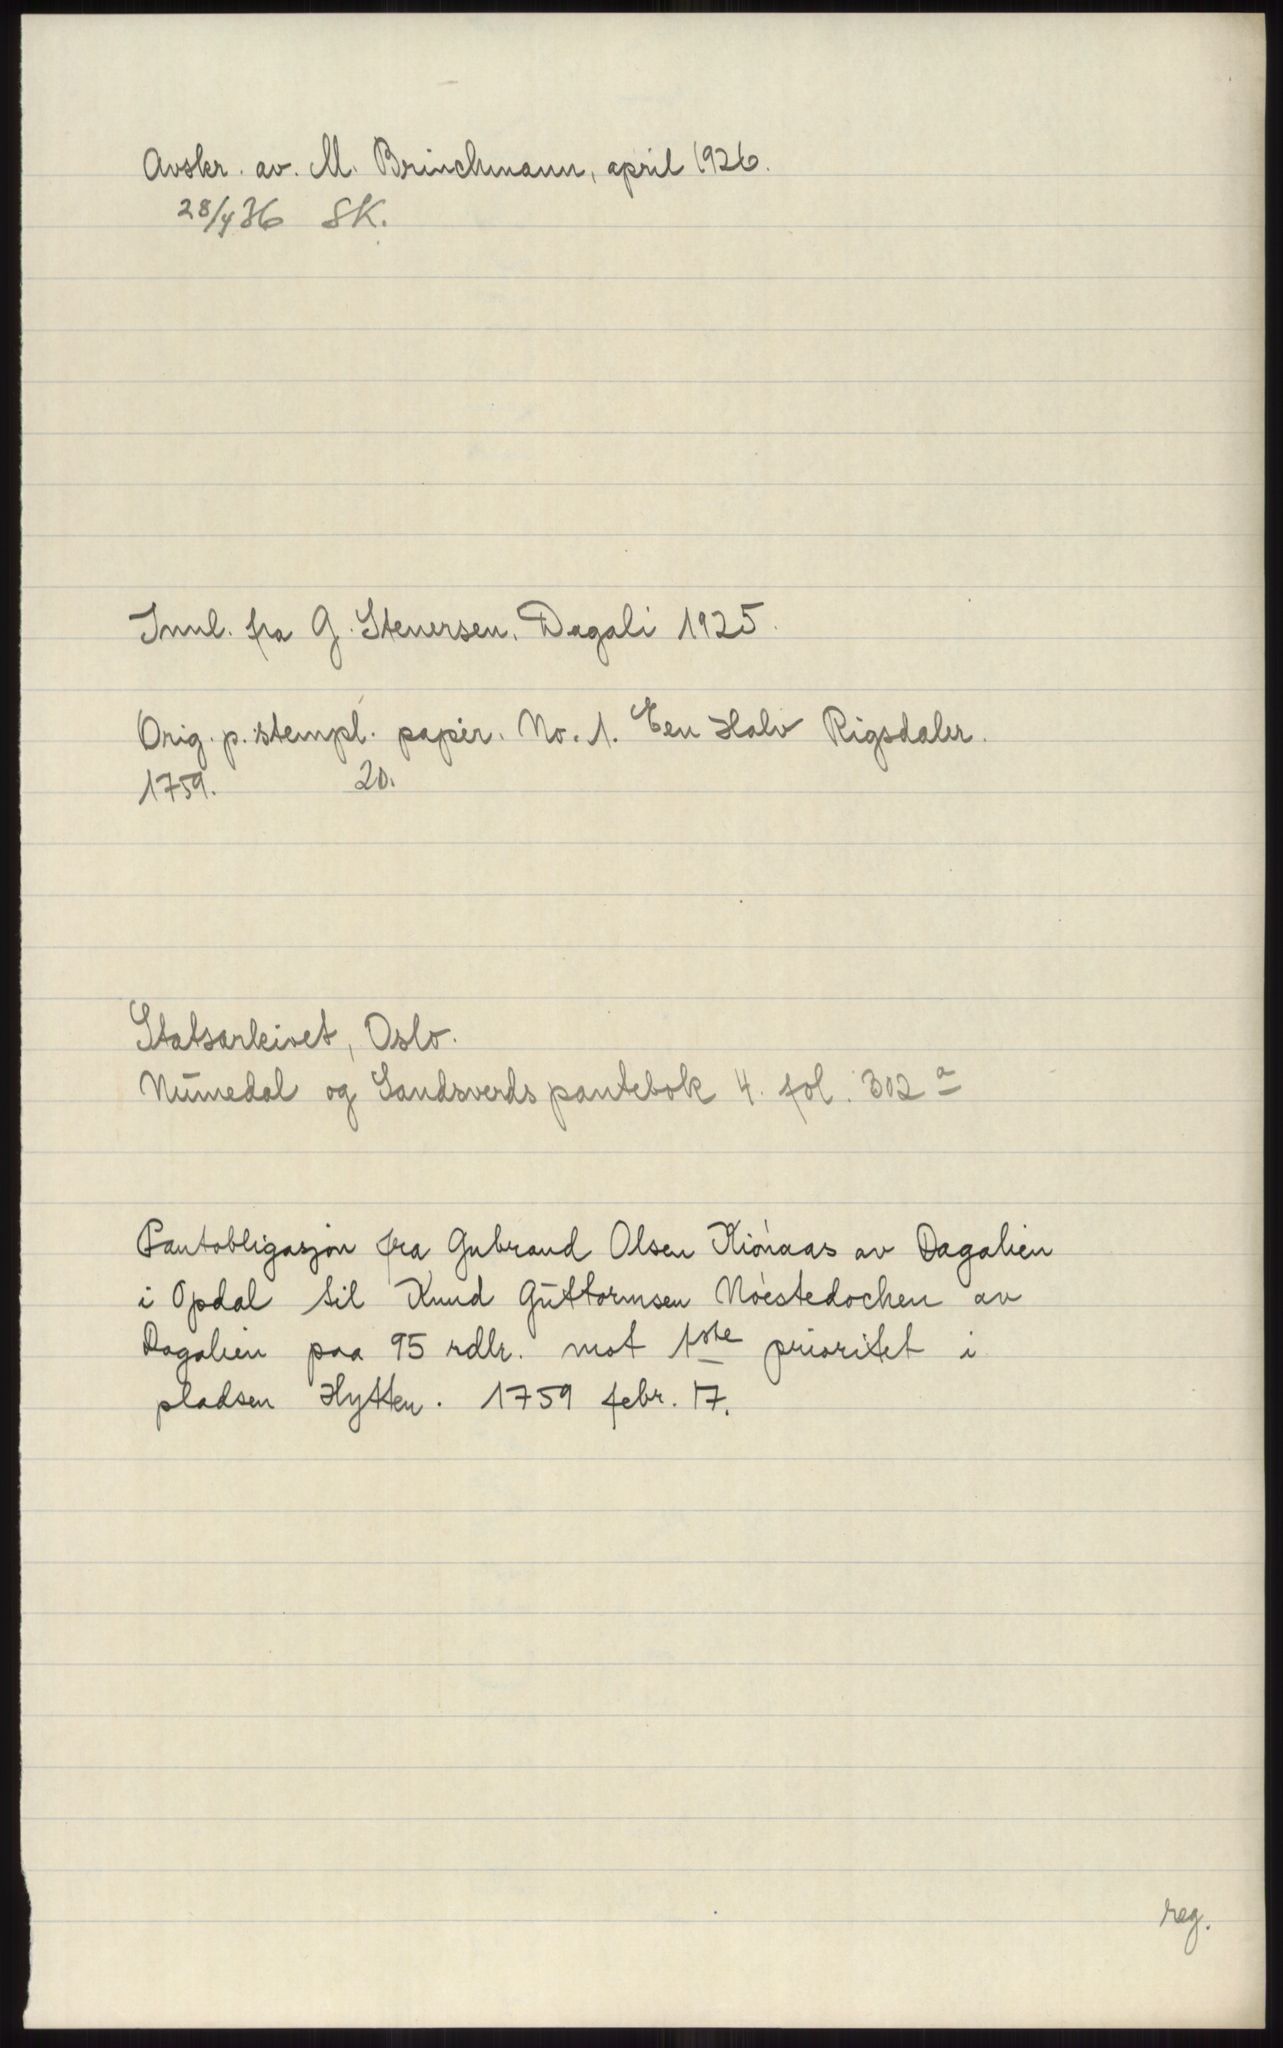 Avskr. av. M. Brinchmann, april 1926.
28/4 36 SK.
Innl. fra G. Stenersen, Dagali 1925.
Orig. p. stempl. papir. No. 1. Een Halv Rigsdaler.
1759. 20.
Statsarkivet, Oslo.
Numedal og Sandsverds pantebok 4. fol. 302 a
Pantobligasjon fra Gubrand Olsen Kiönaas av Dagalien
i Opdal til Knud Guttormsen Nöestedochen av
Dagalien paa 95 rdlr. mot 1ste prioritet i
pladsen Hytten. 1759 febr. 17.
reg.